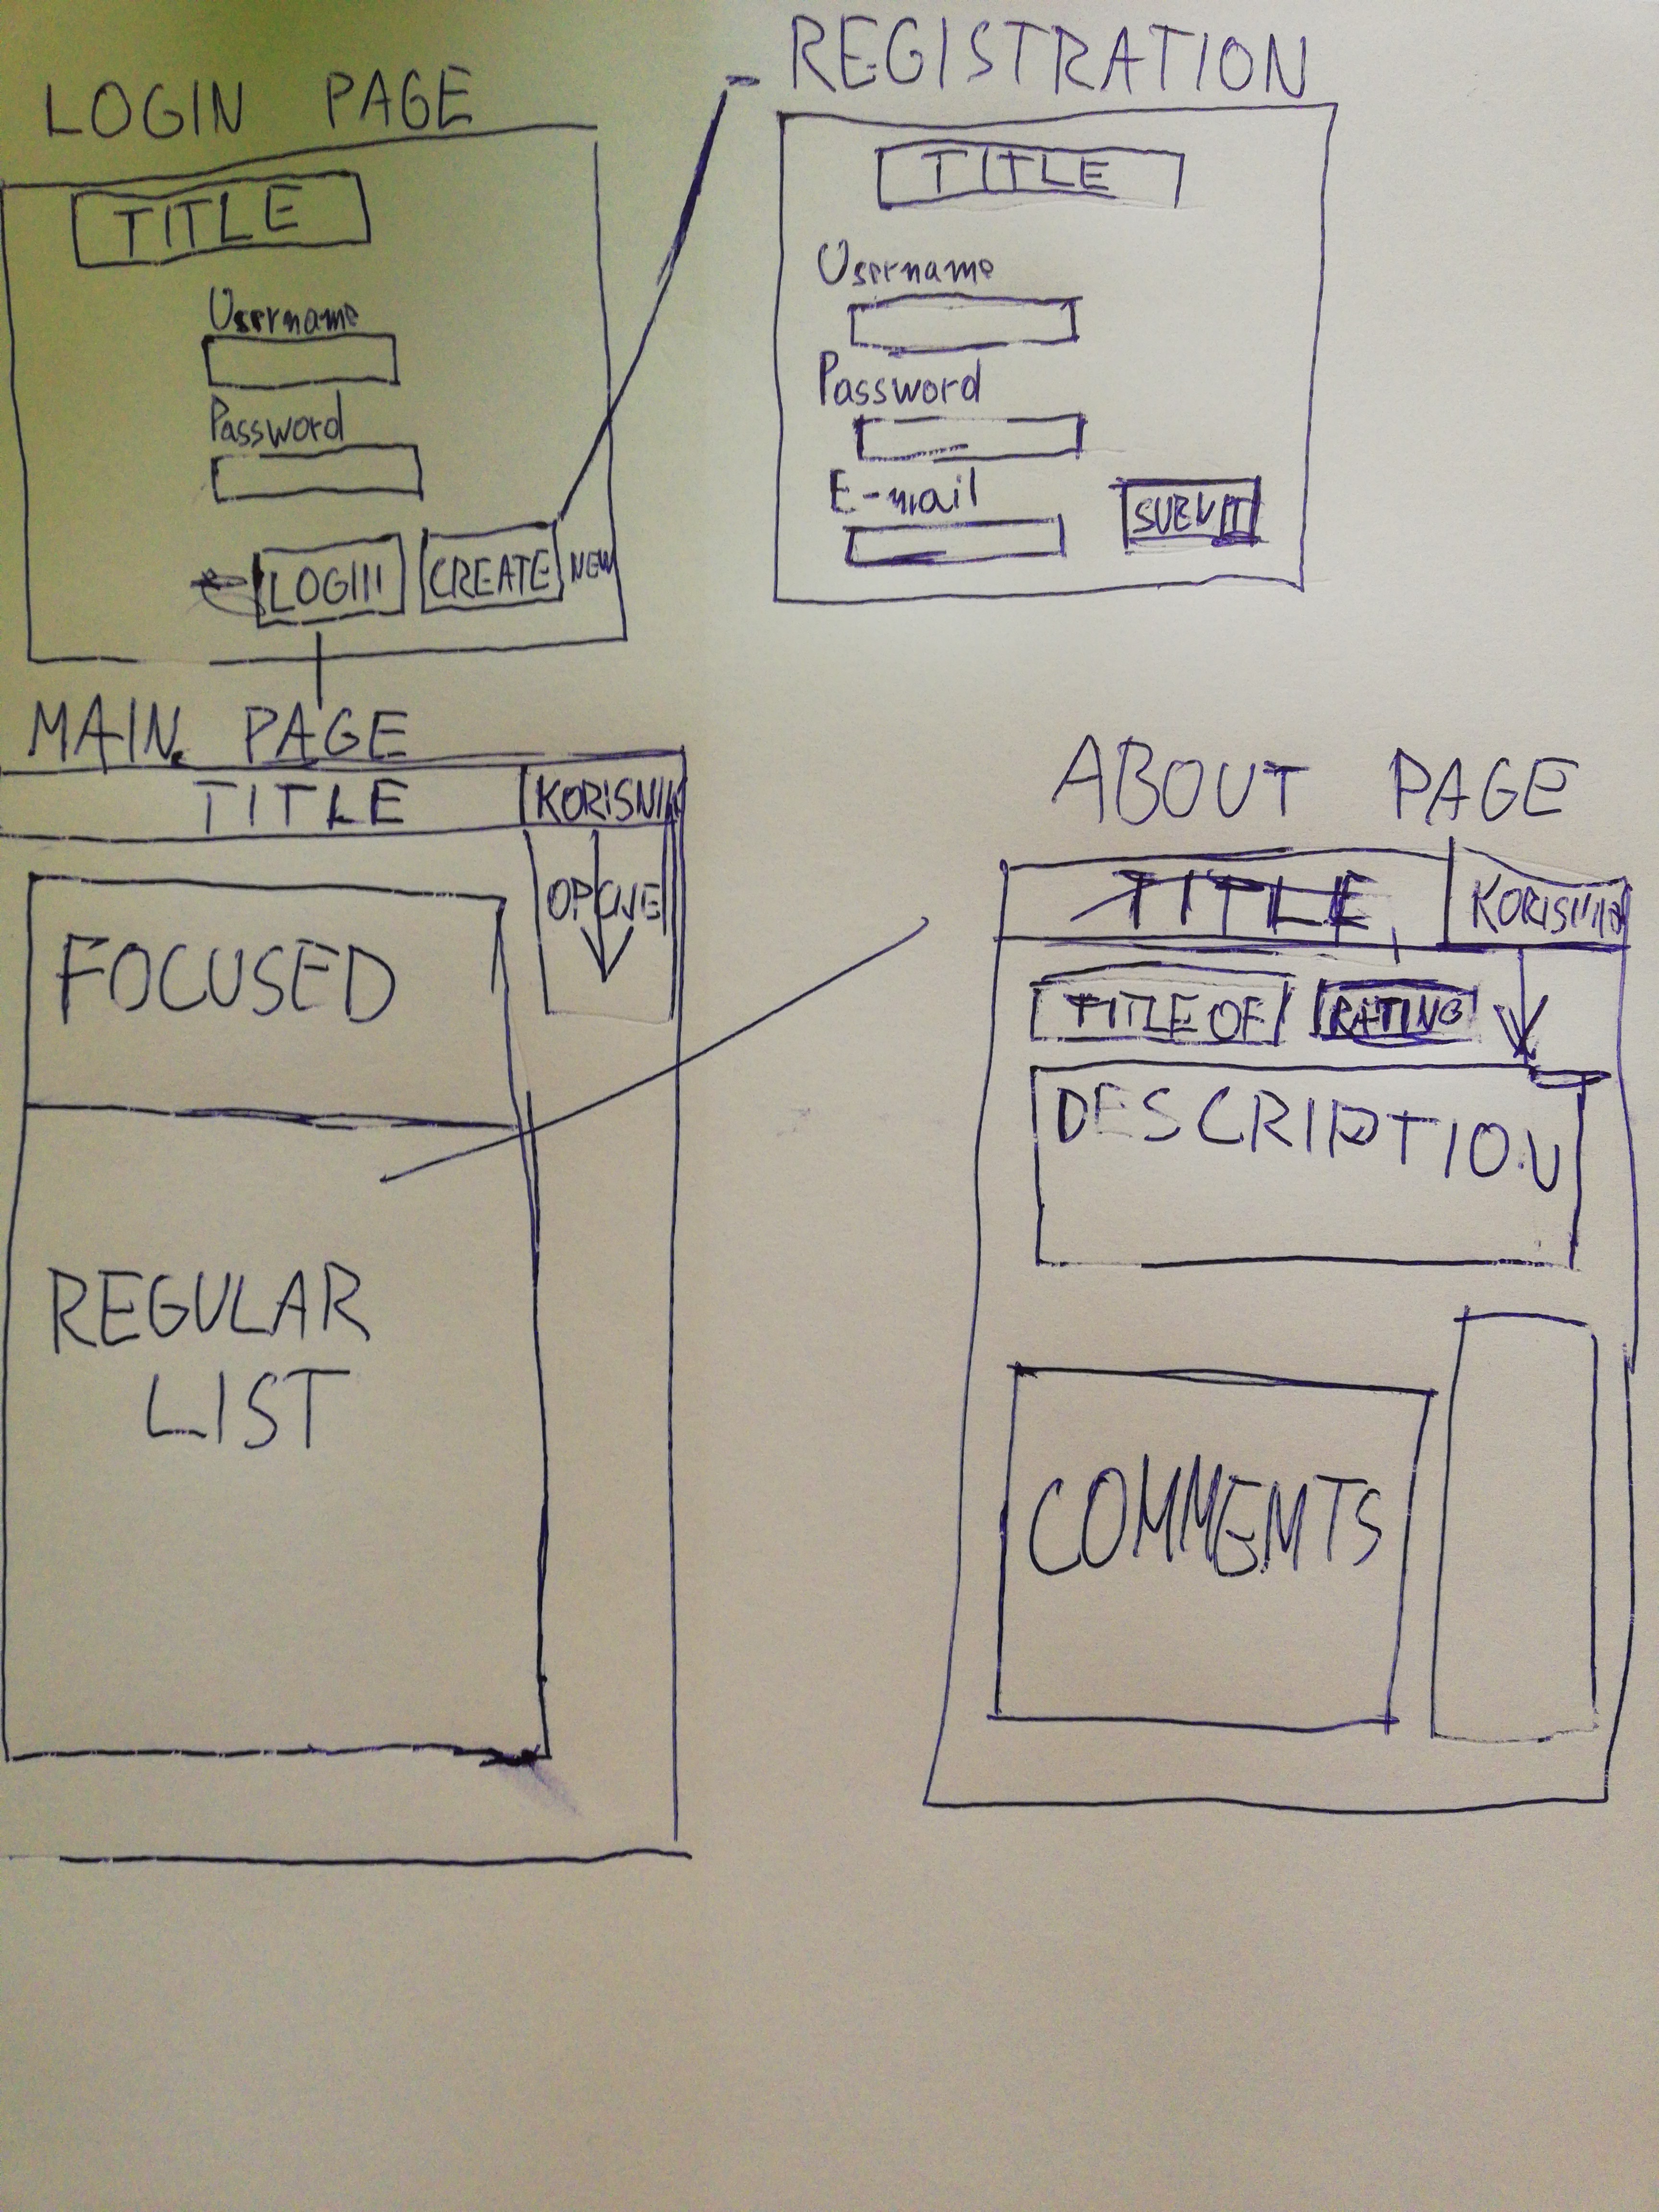 LOGIN PAGE
TITLE
Username
Password
LOGIN CREATE NEW
REGISTRATION
TITLE
Username
Password
E-mail
SUBMIT
MAIN PAGE
TITLE KORISNIK
OPCIJE
FOCUSED
REGULAR
LIST
ABOUT PAGE
TITLE KORISNIK
TITLE OF RATING
DESCRIPTION
COMMENTS